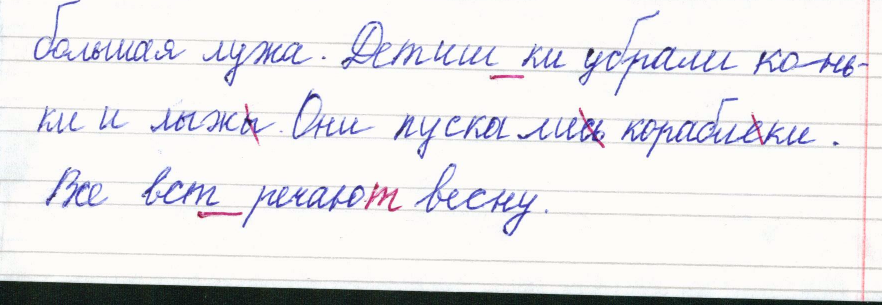 большая лужа. Детиш ки убрали конь-
ки и лыжы. Они пускались кораблеки.
Все вст речают весну.